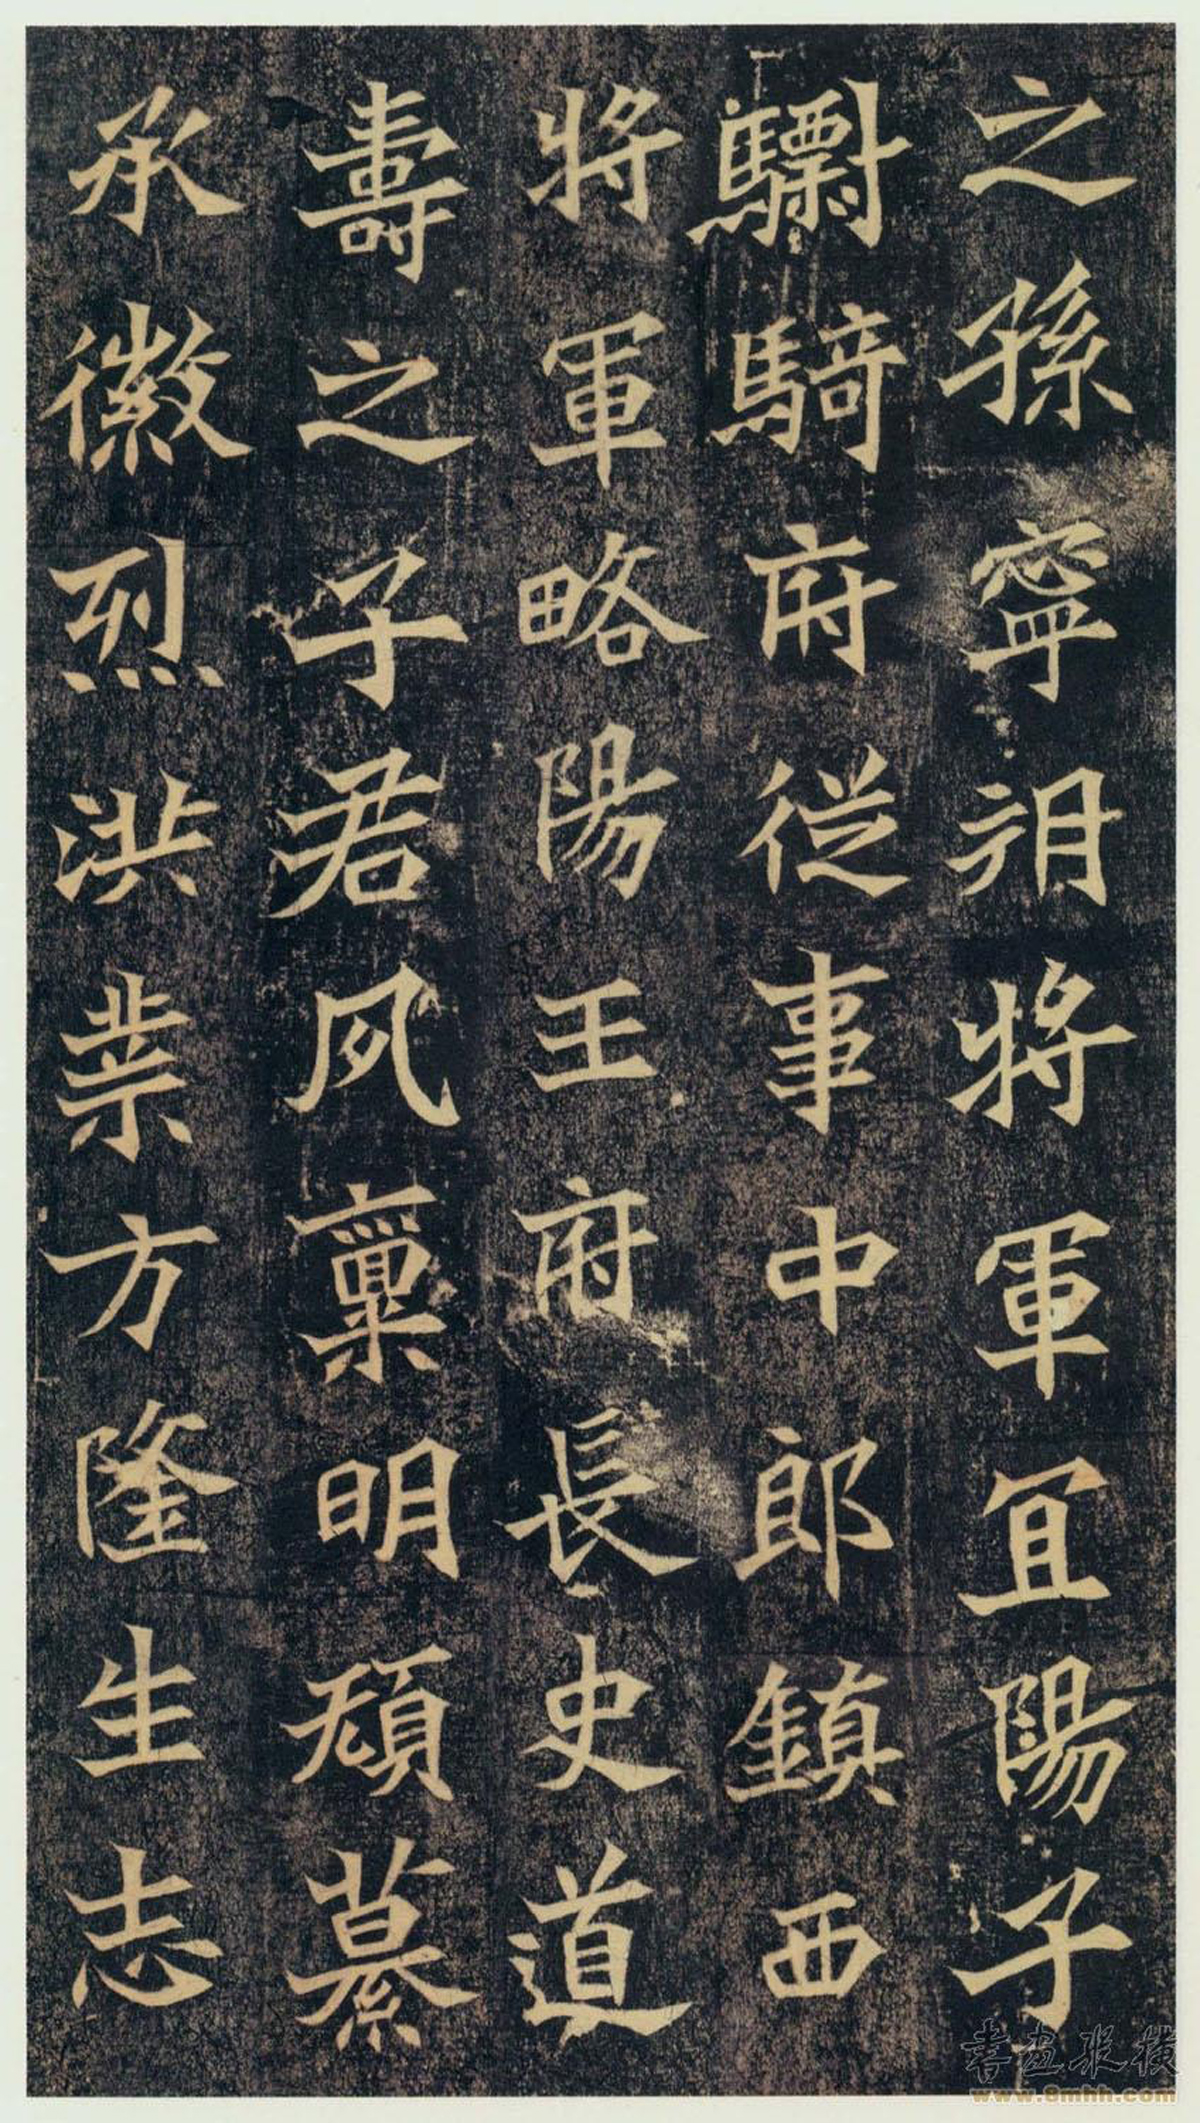 之孫寧朔將軍宜陽子
驃騎府從事中郎鎮西
將軍略陽王府長史道
壽之子君夙稟明頑纂
承徽烈洪業方隆生志
書画縱橫
www.8mhh.com